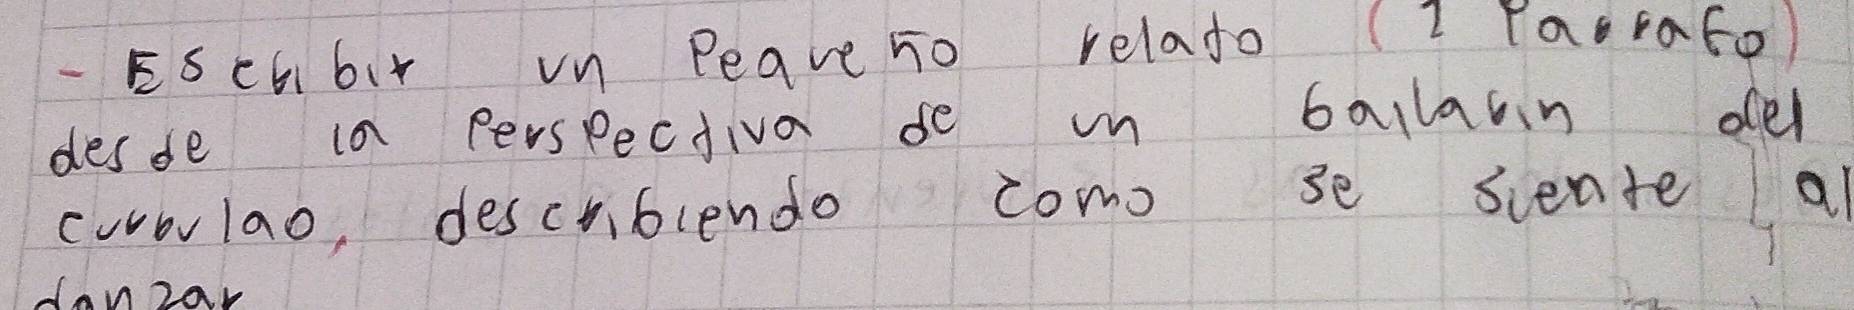 - Escribir un Pequeño relato (1 Parrafo)
desde la PersPectiva de un bailarin del
currulao, describiendo como se siente al
danzar